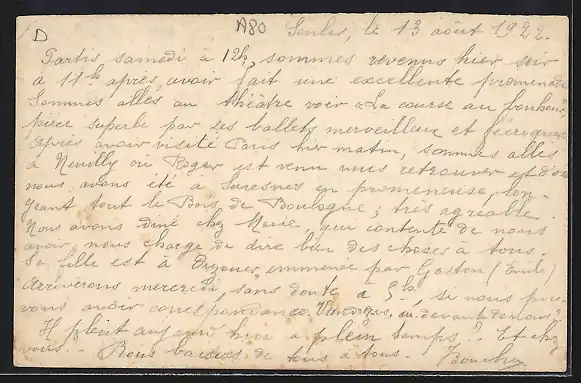 D
A80
Senlis, le 13 août 1922.
Partis samedi à 12h, sommes revenus hier soir
à 11h après avoir fait une excellente promenade
Sommes allés au théâtre voir "La course au bonheur",
pièce superbe par ses ballets merveilleux et féeriques
Après avoir visité Paris hier matin, sommes allés
à Neuilly où Roger est venu nous retrouver et d'où
nous avons été à Suresnes en promeneuse, lon-
geant tout le Bois de Boulogne; très agréable.
Nous avons diné chez Marie, qui contente de nous
avoir, nous charge de dire bien des choses à tous.
Sa fille est à emmenée par Gaston (Emile)
Arriverons mercredi, sans doute à 5h, si nous pou-
vons avoir correspondance. Viendrez au devant de nous?
Il pleut aujourd'hui à plein temps. Et chez
vous. - Bons baisers de tous à tous.